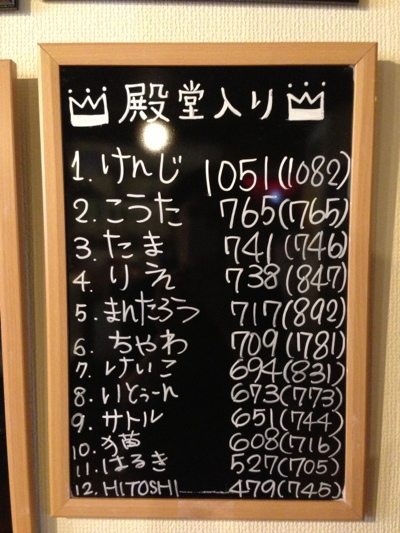 殿堂入り
1. けんじ 1051(1082)
2. こうた 765(765)
3. たま 741(746)
4. りえ 738(847)
5. まんたろう 717(892)
6. ちゃわ 709(781)
7. けいこ 694(831)
8. いとぅーん 673(773)
9. サトル 651(744)
10. 608(716)
11. はるき 527(705)
12. HITOSHI 479(745)